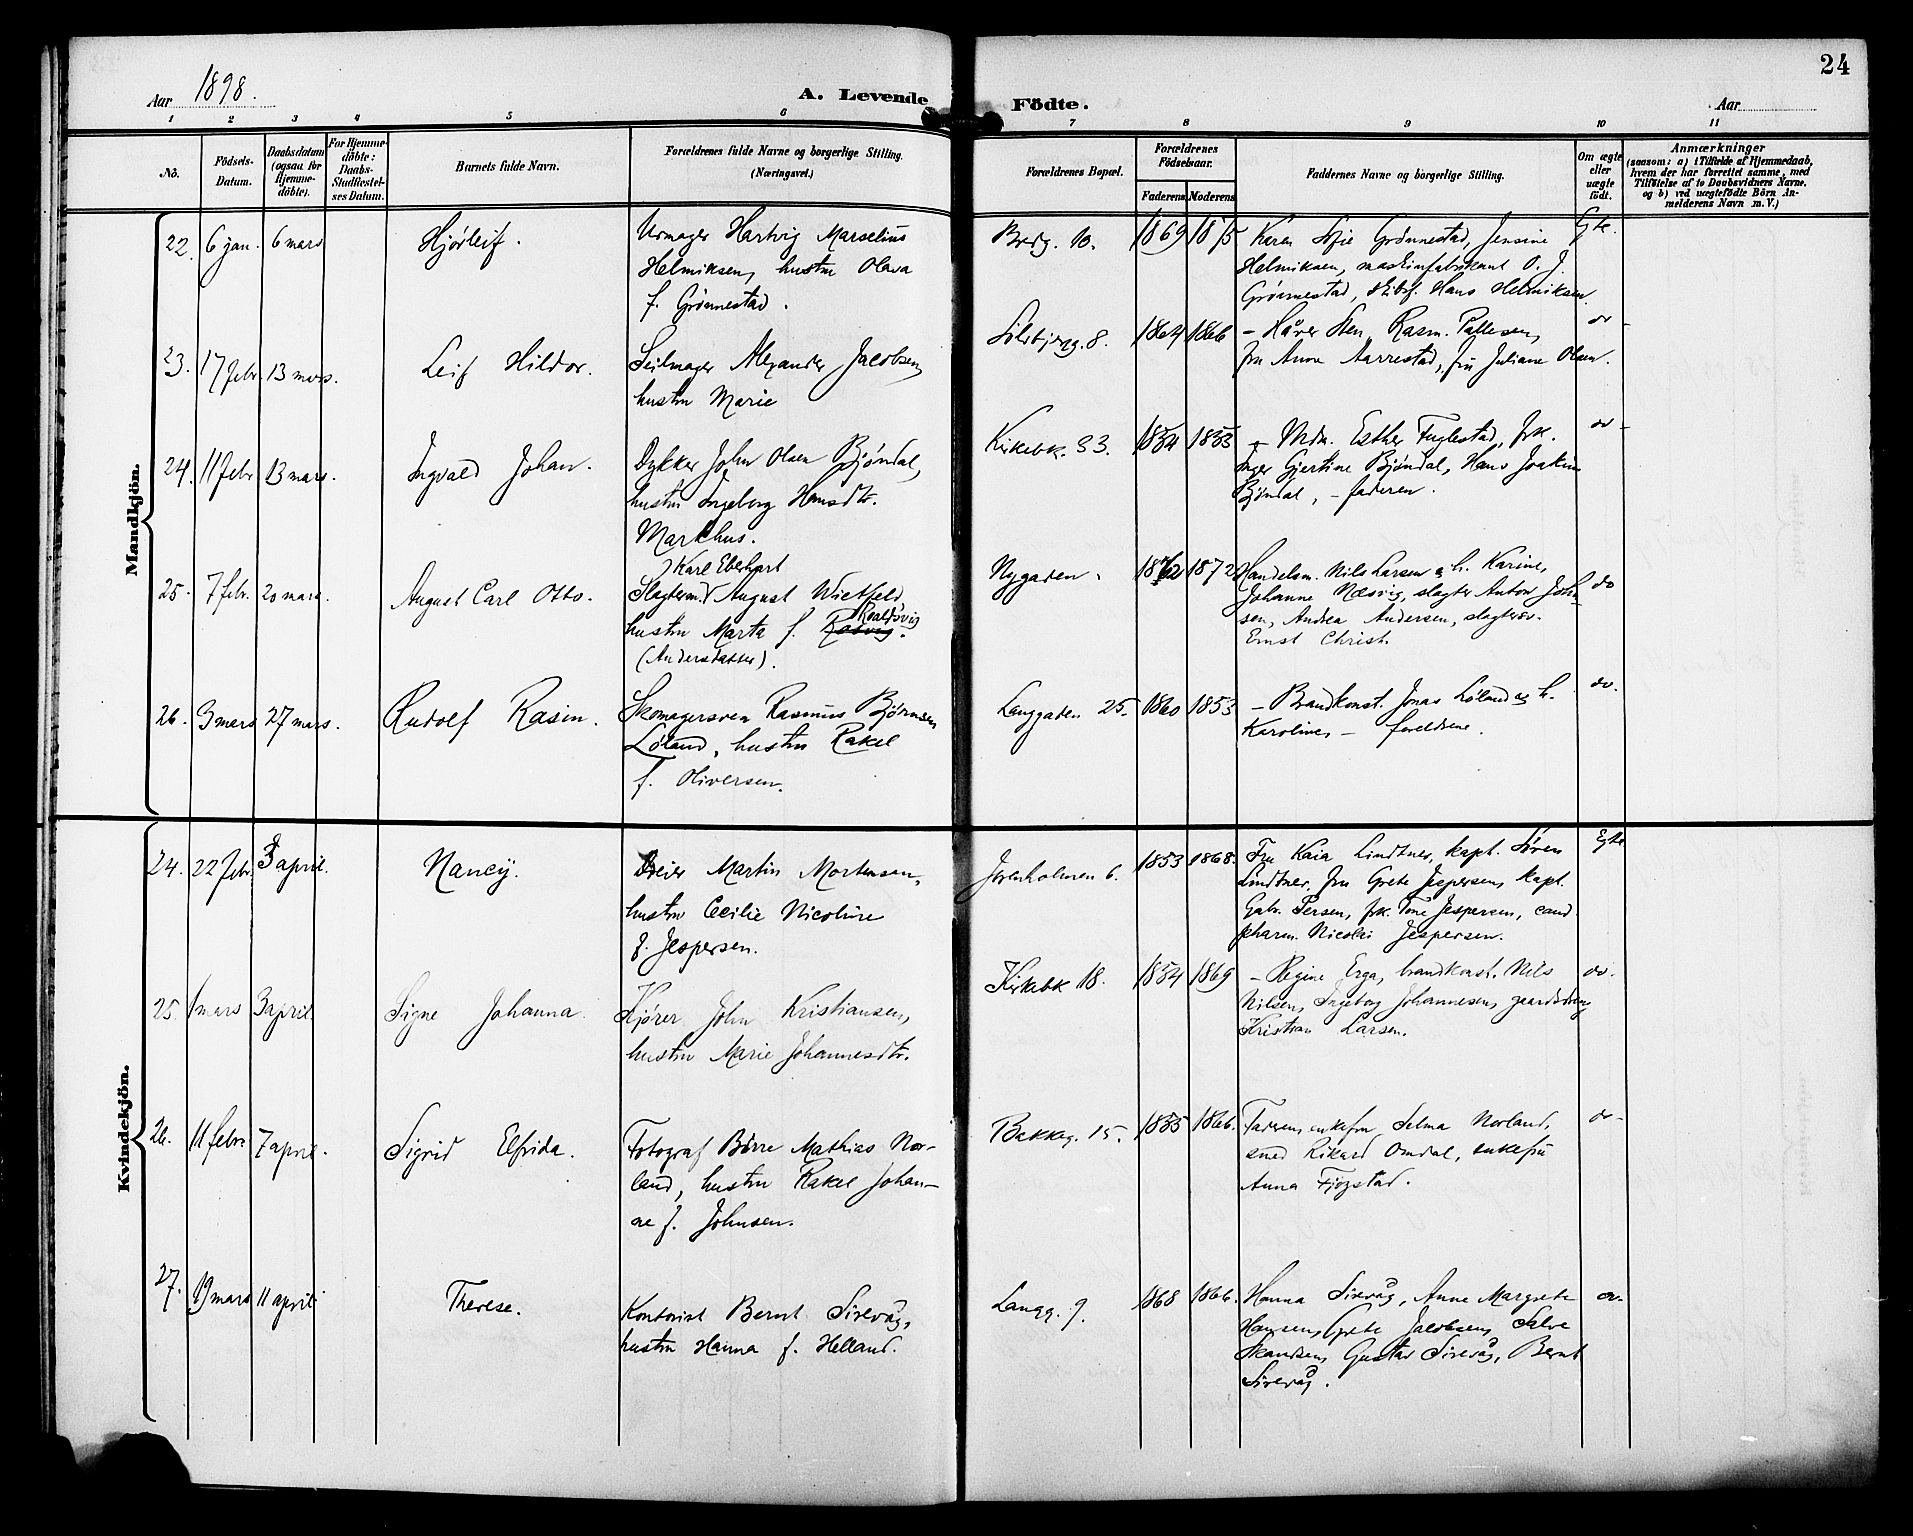 24
Aar 1898.
A. Levende Födte.
Aar
1 2 3 4 5 6 7 8 9 10 11
No.
Födsels-
Datum.
Daabsdatum
(ogsaa for
Hjemme-
döbte).
For Hjemme-
döbte:
Daabs-
Stadfæstel-
ses Datum.
Barnets fulde Navn.
Forældrenes fulde Navne og borgerlige Stilling.
(Næringsvei.)
Forældrenes Bopæl.
Forældrenes
Födselsaar.
Faderens Moderens
Faddernes Navne og borgerlige Stilling.
Om ægte
eller
uægte
födt.
Anmærkninger
(saasom: a) i Tilfælde af Hjemmedaab,
hvem der har forrettet samme, med
Tilföielse af to Daabsvidners Navne.
og b) ved uægtefödte Börn An-
melderens Navn m. V.)
Mandkjön.
22. 6 jan. 6 mars Hjørleif.
Urmager Hartvig Marselius
Helmiksen, hustru Olava
f. Grønnestad.
Berg. 10. 1869 1875
Karen Sofie Grønnestad, Jensine
Helmiksen, maskinfabrikant O. J.
Grønnestad, skibsf. Hans Helmiksen.
Egte.
23. 17 febr. 13 mars. Leif Hildor.
Seilmager Alexander Jacobsen,
hustru Marie
Sølvbjerg. 8. 1864 1866
– Håver Sten, Rasm. Pallesen,
fru Anne Aarrestad, fru Juliane Olsen.
do
24. 11 febr 13 mars. Ingvald Johan.
Dykker John Olsen Bjøndal,
hustru Ingeborg Hansdtr.
Markhus.
Kirkebk. 33. 1854 1853
– Mdm. Esther Fuglestad, frk.
Inger Gjertine Bjøndal, Hans Joakim
Bjøndal, – faderen.
do
25. 7 febr. 20 mars. August Carl Otto.
Karl Eberhart
Slagterm. August Wietfeld,
Roaldsvig
hustru Marta f. Rosvig.
(Andersdatter).
Nygaden. 1862 1872
Handelsm. Nils Larsen og h. Karine,
Johanne Næsvig, slagter Anton Joh-
sen, Andrea Andersen, slagtersv.
Ernst Christ.
do
26. 3 mars 27 mars. Rudolf Rasin.
Skomagersven Rasmus Bjørnsen
Løland, hustru Rakel
f. Oliversen.
Langgaden 25. 1860 1853
– Brandkonst. Jonas Løland og h.
Karoline, – foreldrene.
do.
Kvindekjön.
24. 22 febr. 3 april. Nancy.
Dreier Martin Mortensen,
hustru Cecilie Nicoline
f. Jespersen.
Jorenholmen 6. 1853 1868.
Fru Kaia Lindtner, kapt. Søren
Lindtner, fru Grete Jespersen, kapt.
Gabr. Iersen, frk. Tone Jespersen, cand.
pharm. Nicolai Jespersen.
Egte
25. 1 mars 3 april. Signe Johanna.
Kjører John Kristiansen,
hustru Marie Johannesdtr.
Kirkebk 18. 1854 1869
– Regine Erga, brandkonst. Nils
Nilsen, Ingeborg Johannesen, gaardsdreng
Kristian Larsen.
do.
26. 11 febr. 7 april. Sigrid Elfrida.
Fotograf Børre Mathias Nor-
land, hustru Rakel Johan-
ne f. Johnsen.
Bakkeg. 15. 1855 1866.
Faderen, enkefru Selma Norland,
smed Rikard Omdal, enkefru
Anna Fjogstad.
do
27. 19 mars 11 april Therese.
Kontorist Bernt Sirevåg,
hustru Hanna f. Helland.
Langg. 9. 1868 1866.
Hanna Sirevåg, Anne Margrete
Hansen, Grete Jacobsen, Salve
Skandsen, Gustav Sirevåg, Bernt
Sirevåg.
do.